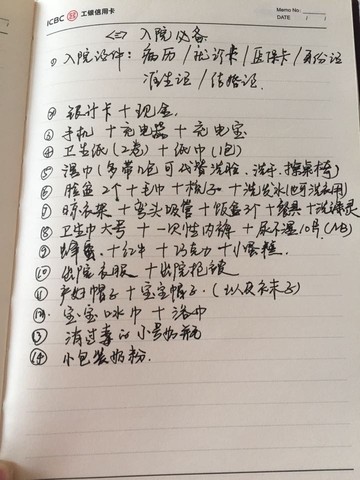 ICBC 工银信用卡
Memo No.
DATE / /
<二> 入院必备
① 入院证件: 病历/就诊卡/医保卡/身份证
准生证/结婚证.
② 银行卡+现金.
③ 手机+充电器+充电宝
④ 卫生纸(2卷)+纸巾(1包)
⑤ 湿巾(多带几包可代替洗脸、洗手、擦桌椅)
⑥ 脸盆2个+毛巾+梳子+洗发水(也可洗衣用)
⑦ 晾衣架+弯头吸管+饭盒3个+餐具+洗洁
⑧ 卫生巾大号+一次性内裤+尿不湿10片(NB)
⑨ 蜂蜜+红牛+巧克力+小蛋糕.
⑩ 出院衣服+出院抱被
⑪ 产妇帽子+宝宝帽子.(以及袜子)
⑫ 宝宝口水巾+浴巾
⑬ 消过毒的小号奶瓶
⑭ 小包装奶粉.